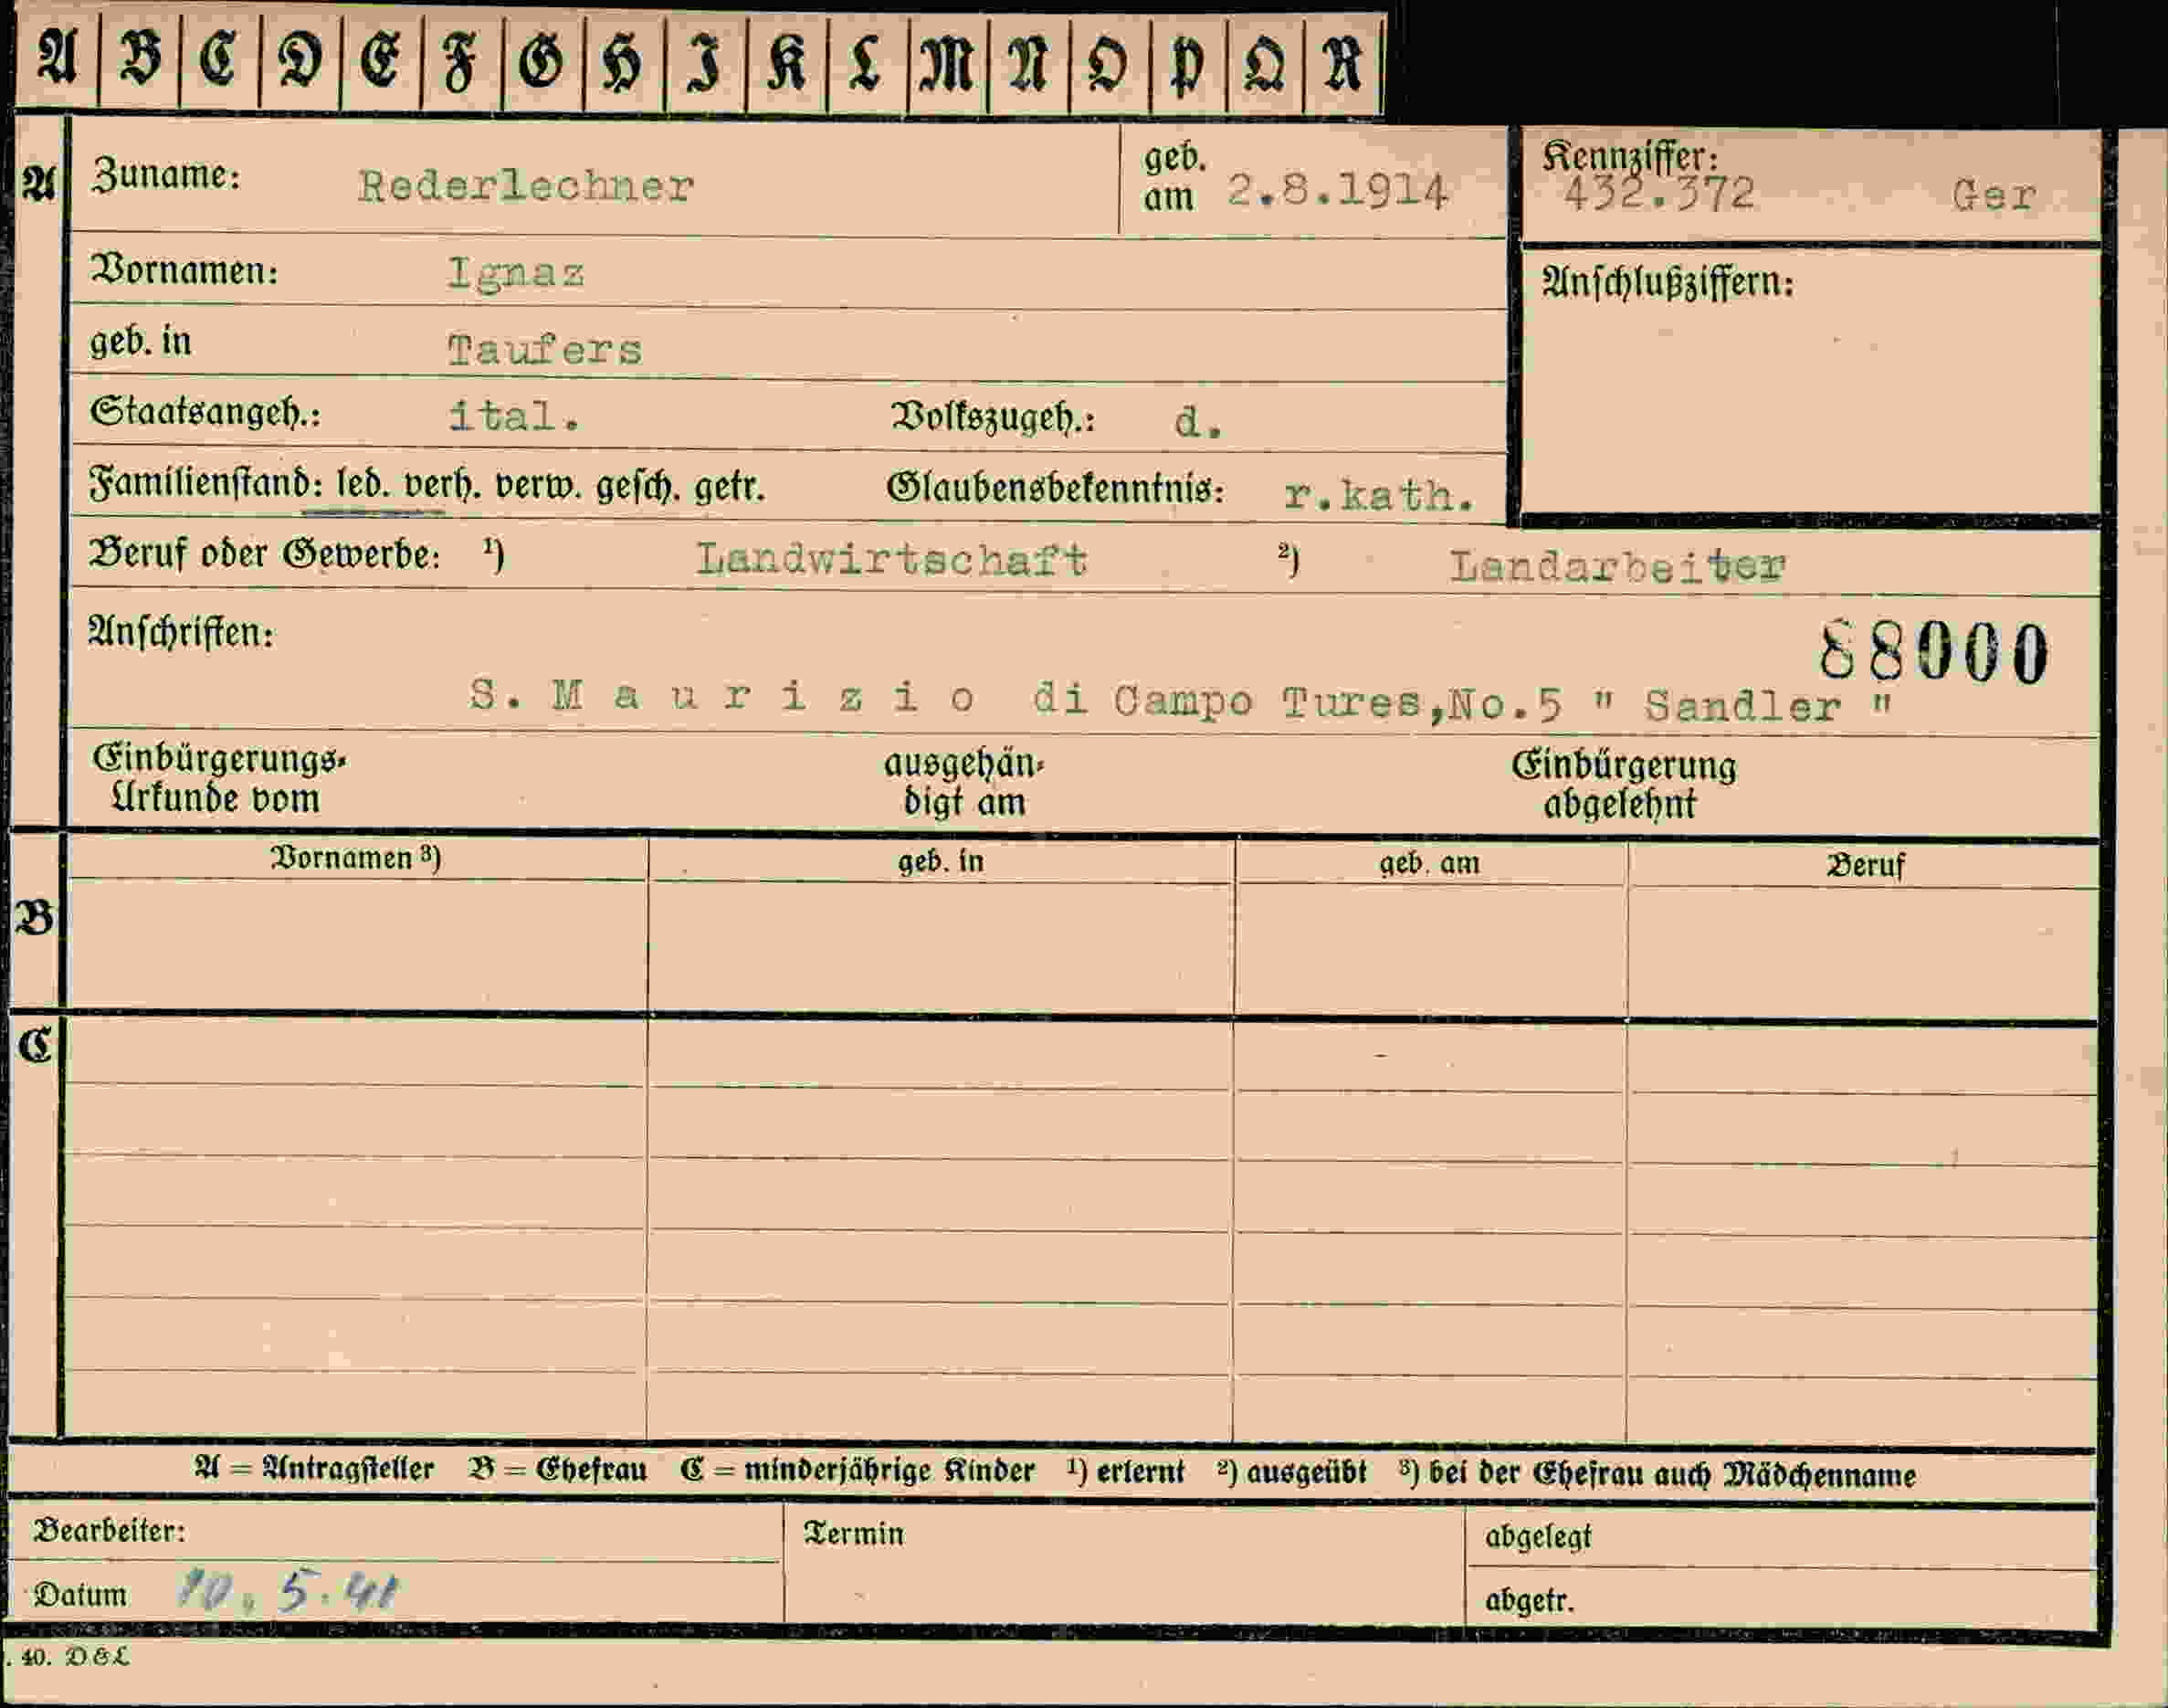 A B C D E F G H I K L M N O P Q R
A Zuname: Rederlechner geb. am 2.8.1914 Kennziffer: 432.372 Ger
Vornamen: Ignaz Anschlußziffern:
geb. in Taufers
Staatsangeh.: ital. Volkszugeh.: d.
Familienstand: led. verh. verw. gesch. getr. Glaubensbekenntnis: r.kath.
Beruf oder Gewerbe: ¹) Landwirtschaft ²) Landarbeiter
Anschriften: 88000
S. M a u r i z i o di Campo Tures,No.5 " Sandler "
Einbürgerungs- ausgehän- Einbürgerung
Urkunde vom digt am abgelehnt
Vornamen ³) geb. in geb. am Beruf
B
C
A = Antragsteller B = Ehefrau C = minderjährige Kinder ¹) erlernt ²) ausgeübt ³) bei der Ehefrau auch Mädchenname
Bearbeiter: Termin abgelegt
Datum 10. 5. 41 abgetr.
. 40. D & L